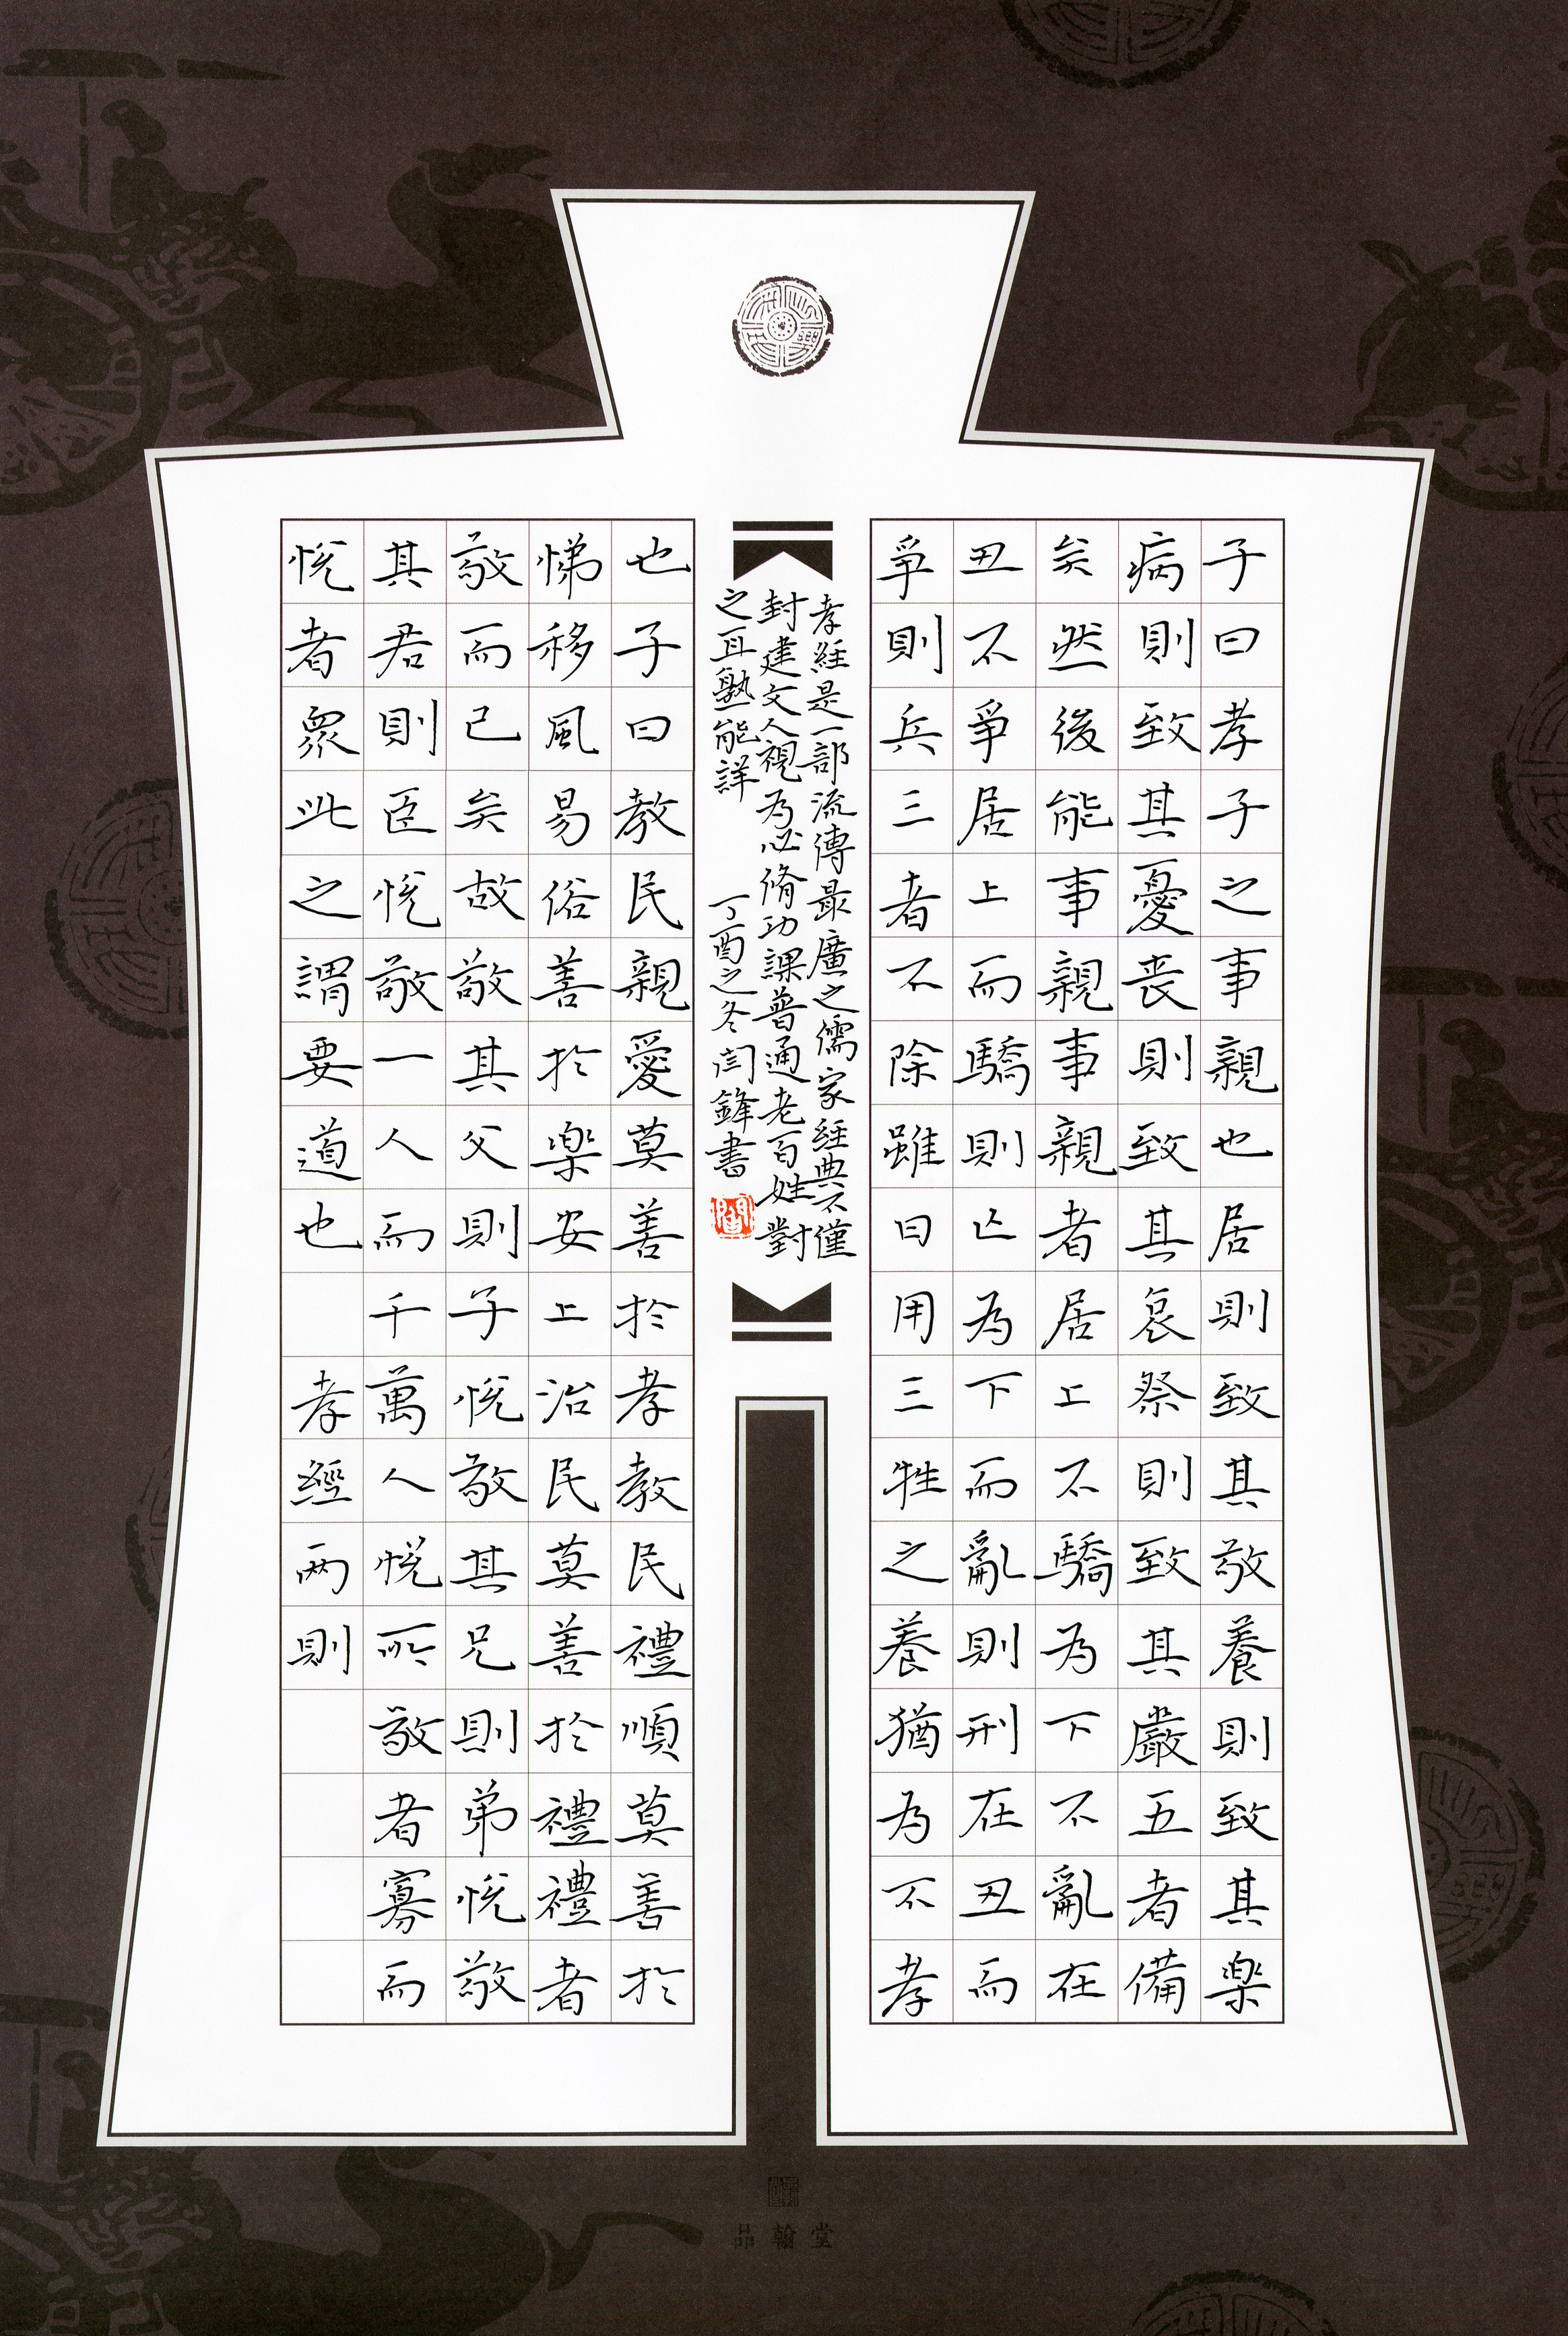 子曰孝子之事親也居則致其敬養則致其楽
病則致其憂喪則致其哀祭則致其嚴五者備
矣然後能事親事親者居上不驕為下不亂在
丑不爭居上而驕則亡為下而亂則刑在丑而
爭則兵三者不除雖曰用三牲之養猶為不孝
也子曰教民親愛莫善於孝教民禮順莫善於
悌移風易俗善於楽安上治民莫善於禮禮者
敬而已矣故敬其父則子悦敬其兄則弟悦敬
其君則臣悦敬一人而千萬人悦所敬者寡而
悦者衆此之謂要道也 孝經两則
孝経是一部流傳最廣之儒家経典不僅
封建文人視為必脩功課普通老百姓對
之耳熟能詳 丁酉之冬閆鋒書
品翰堂